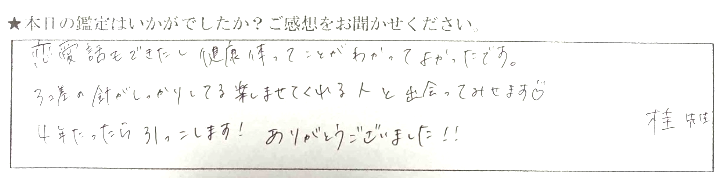 ★本日の鑑定はいかがでしたか？ご感想をお聞かせください。
恋愛話もできたし健康体ってことがわかってよかったです。
3つ差の針がしっかりしてる楽しませてくれる人と出会ってみせます♡
4年たったら引っこします！ ありがとうございました！！
桂先生